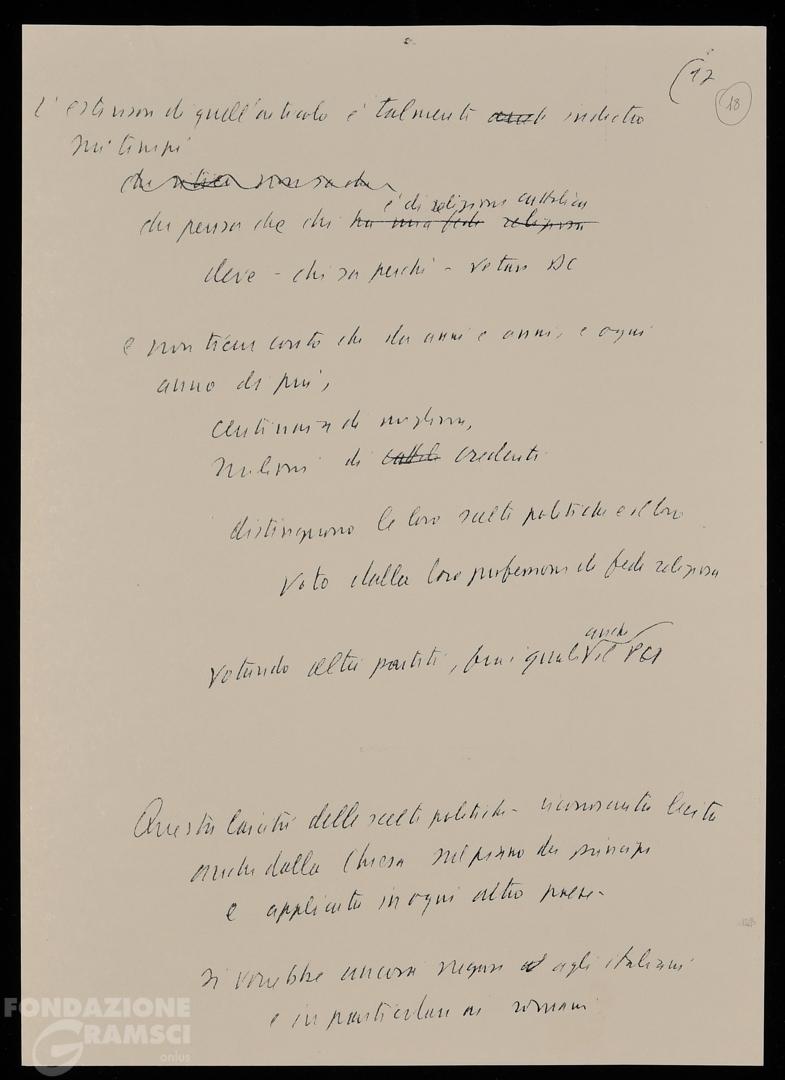 (17
18
L'estensore di quell'articolo è talmente indietro
nei tempi
che non sa che
è di religione cattolica
che pensa che chi ha una fede religiosa
deve - chi sa perché - votare DC
e non tiene conto che da anni e anni, e ogni
anno di più,
centinaia di migliaia,
milioni di credenti
distinguono le loro scelte politiche e il loro
voto dalla loro professione di fede religiosa
anche
votando altri partiti, fra i quali il PCI
Questa laicità delle scelte politiche - riconosciuta lecita
anche dalla Chiesa sul piano dei principi
e applicata in ogni altro paese -
si vorrebbe ancora negare agli italiani
e in particolare ai romani
FONDAZIONE
GRAMSCI
onlus